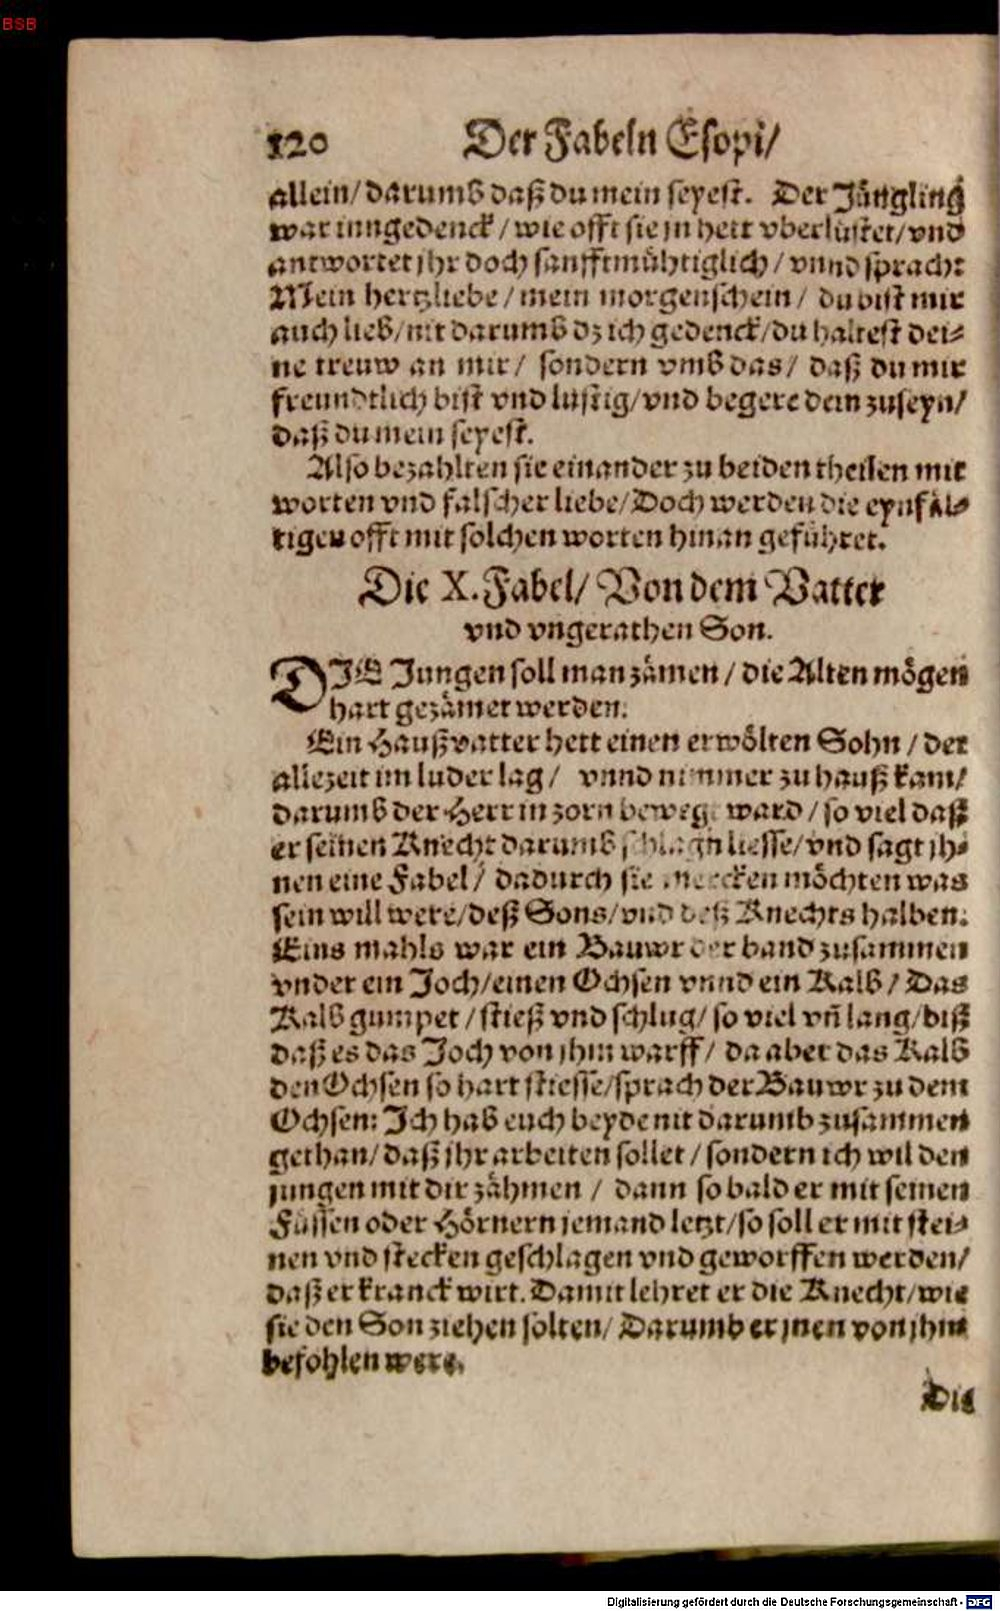 BSB
120 Der Fabeln Esopi/
allein/ darumb daß du mein seyest. Der Jüngling
war inngedenck/ wie offt sie jn hett vberlüstet/ vnd
antwortet jhr doch sanfftmühtiglich/ vnnd sprach:
Mein hertzliebe/ mein morgenschein/ du bist mir
auch lieb/ nit darumb dz ich gedenck/ du haltest dei⸗
ne treuw an mir/ sondern vmb das/ daß du mir
freundtlich bist vnd lustig/ vnd begere dein zuseyn/
daß du mein seyest.
Also bezahlten sie einander zu beiden theilen mit
worten vnd falscher liebe/ Doch werden die eynfäl⸗
tigen offt mit solchen worten hinan geführet.
Die X. Fabel/ Von dem Vatter
vnd vngerathen Son.
DIE Jungen soll man zämen/ die Alten mögen
hart gezämet werden.
Ein Haußvatter hett einen erwölten Sohn/ der
allezeit im luder lag/ vnnd nimmer zu hauß kam/
darumb der Herr in zorn bewegt ward/ so viel daß
er seinen Knecht darumb schlagn liesse/ vnd sagt jh⸗
nen eine Fabel/ dadurch sie mercken möchten was
sein will were/ deß Sons/ vnd deß Knechts halben.
Eins mahls war ein Bauwr der band zusammen
vnder ein Joch/ einen Ochsen vnnd ein Kalb/ Das
Kalb gumpet/ stieß vnd schlug/ so viel vñ lang/ biß
daß es das Joch von jhm warff/ da aber das Kalb
den Ochsen so hart stiesse/ sprach der Bauwr zu dem
Ochsen: Ich hab euch beyde nit darumb zusammen
gethan/ daß jhr arbeiten sollet/ sondern ich wil den
jungen mit dir zähmen/ dann so bald er mit seinen
Füssen oder Hörnern jemand letzt/ so soll er mit stei⸗
nen vnd stecken geschlagen vnd geworffen werden/
daß er kranck wirt. Damit lehret er die Knecht/ wie
sie den Son ziehen solten/ Darumb er jnen von jhm
befohlen were.
Die
Digitalisierung gefördert durch die Deutsche Forschungsgemeinschaft - DFG